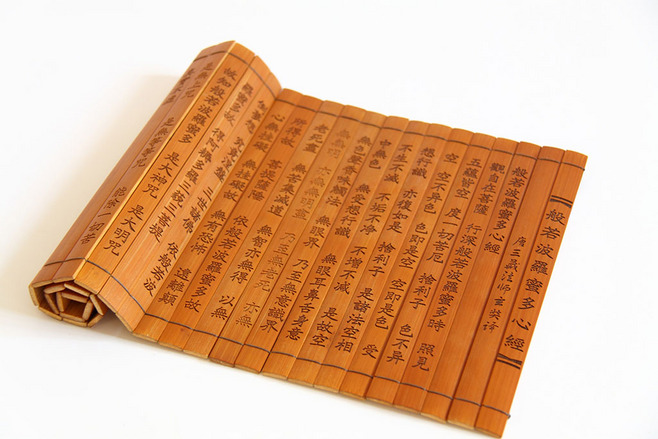 般若波羅蜜多心經
般若波羅蜜多心經 唐三藏法師玄奘譯
觀自在菩薩 行深般若波羅蜜多時 照見
五蘊皆空 度一切苦厄 捨利子 色不異
空 空不異色 色即是空 空即是色 受
想行識 亦復如是 捨利子 是諸法空相
不生不滅 不垢不淨 不增不減 是故空
中無色 無受想行識 無眼耳鼻舌身意
無色聲香味觸法 無眼界 乃至無意識界
無無明 亦無無明盡 乃至無老死 亦無
老死盡 無苦集滅道 無智亦無得 以無
所得故 菩提薩埵 依般若波羅蜜多故
心無挂礙 無挂礙故 無有恐怖 遠離顛
三世諸佛 依般若波
羅蜜多故 得阿耨多羅三藐三菩提
故知般若波羅蜜多 是大神咒 是大明咒
是無上咒 是無等等咒 能除一切苦